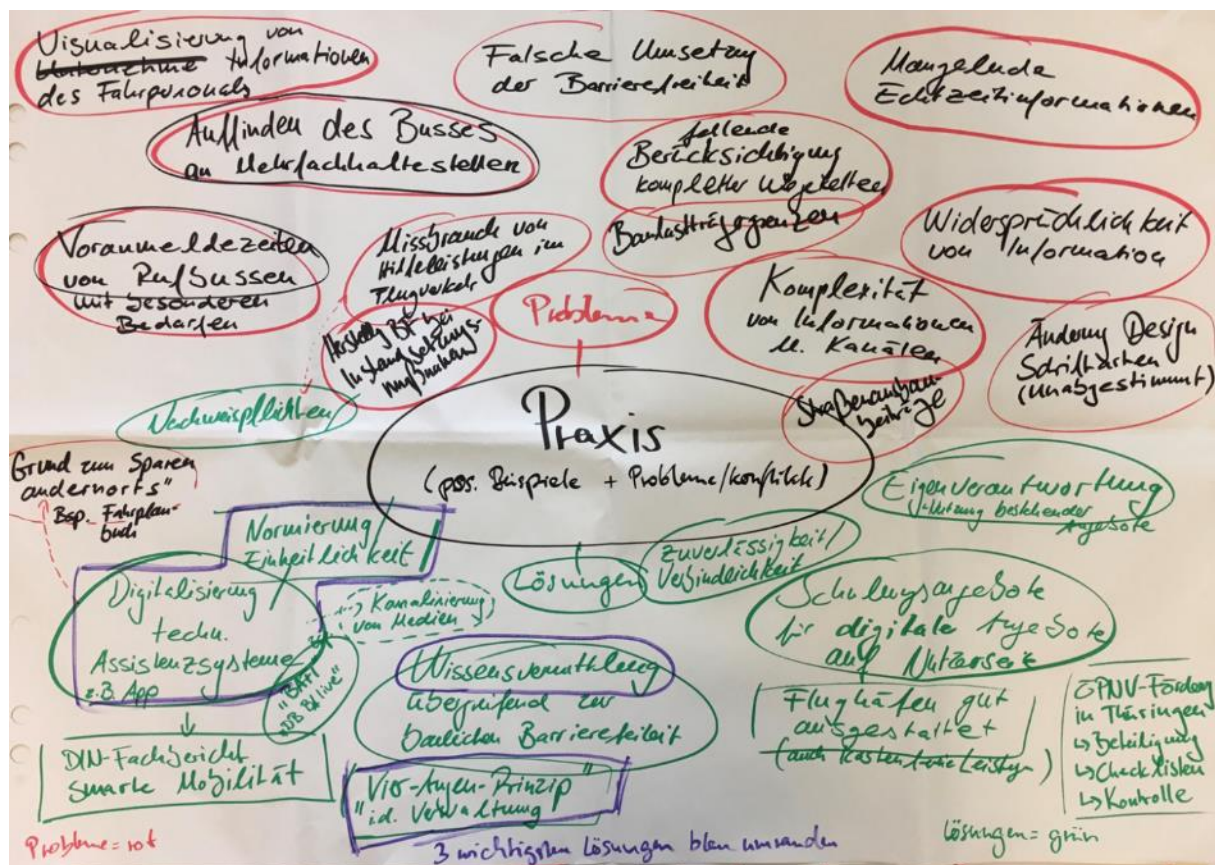 Visualisierung von
Informationen
des Fahrpersonals
Falsche Umsetzung
der Barrierefreiheit
Mangelnde
Echtzeitinformationen
Auffinden des Busses
an Mehrfachhaltestellen
fehlende
Berücksichtigung
kompletter Wegeketten
Baulastträgergrenzen
Widersprüchlichkeit
von Information
Voranmeldezeiten
von Rufbussen
mit besonderen
Bedarfen
Missbrauch von
Hilfeleistungen im
Flugverkehr
Probleme
Komplexität
von Informationen
u. Kanälen
Änderung Design
Schriftarten
(unabgestimmt)
Herstellg BF bei
Instandsetzungs-
maßnahmen
Straßenausbau-
beiträge
Nachweispflichten
Praxis
(pos. Beispiele + Probleme/Konflikte)
Grund zum Sparen
andernorts"
Bsp. Fahrplan-
buch
Normierung/
Einheitlichkeit
Eigenverantwortung
Nutzung bestehender
Angebote
Lösungen
Zuverlässigkeit/
Verbindlichkeit
Digitalisierung
techn.
Assistenzsysteme
z.B. App
Kanalisierung
von Medien
"DB Bf live"
Schulungsangebote
für digitale Angebote
auf Nutzerseite
Wissensvermittlung
übergreifend zur
baulichen Barrierefreiheit
Flughäfen gut
ausgestattet
ÖPNV-Förderung
in Thüringen
↳ Beteiligung
↳ Checklisten
↳ Kontrolle
DIN-Fachbericht
smarte Mobilität
"Vier-Augen-Prinzip"
i.d. Verwaltung
Probleme = rot
3 wichtigsten Lösungen blau umranden
Lösungen = grün